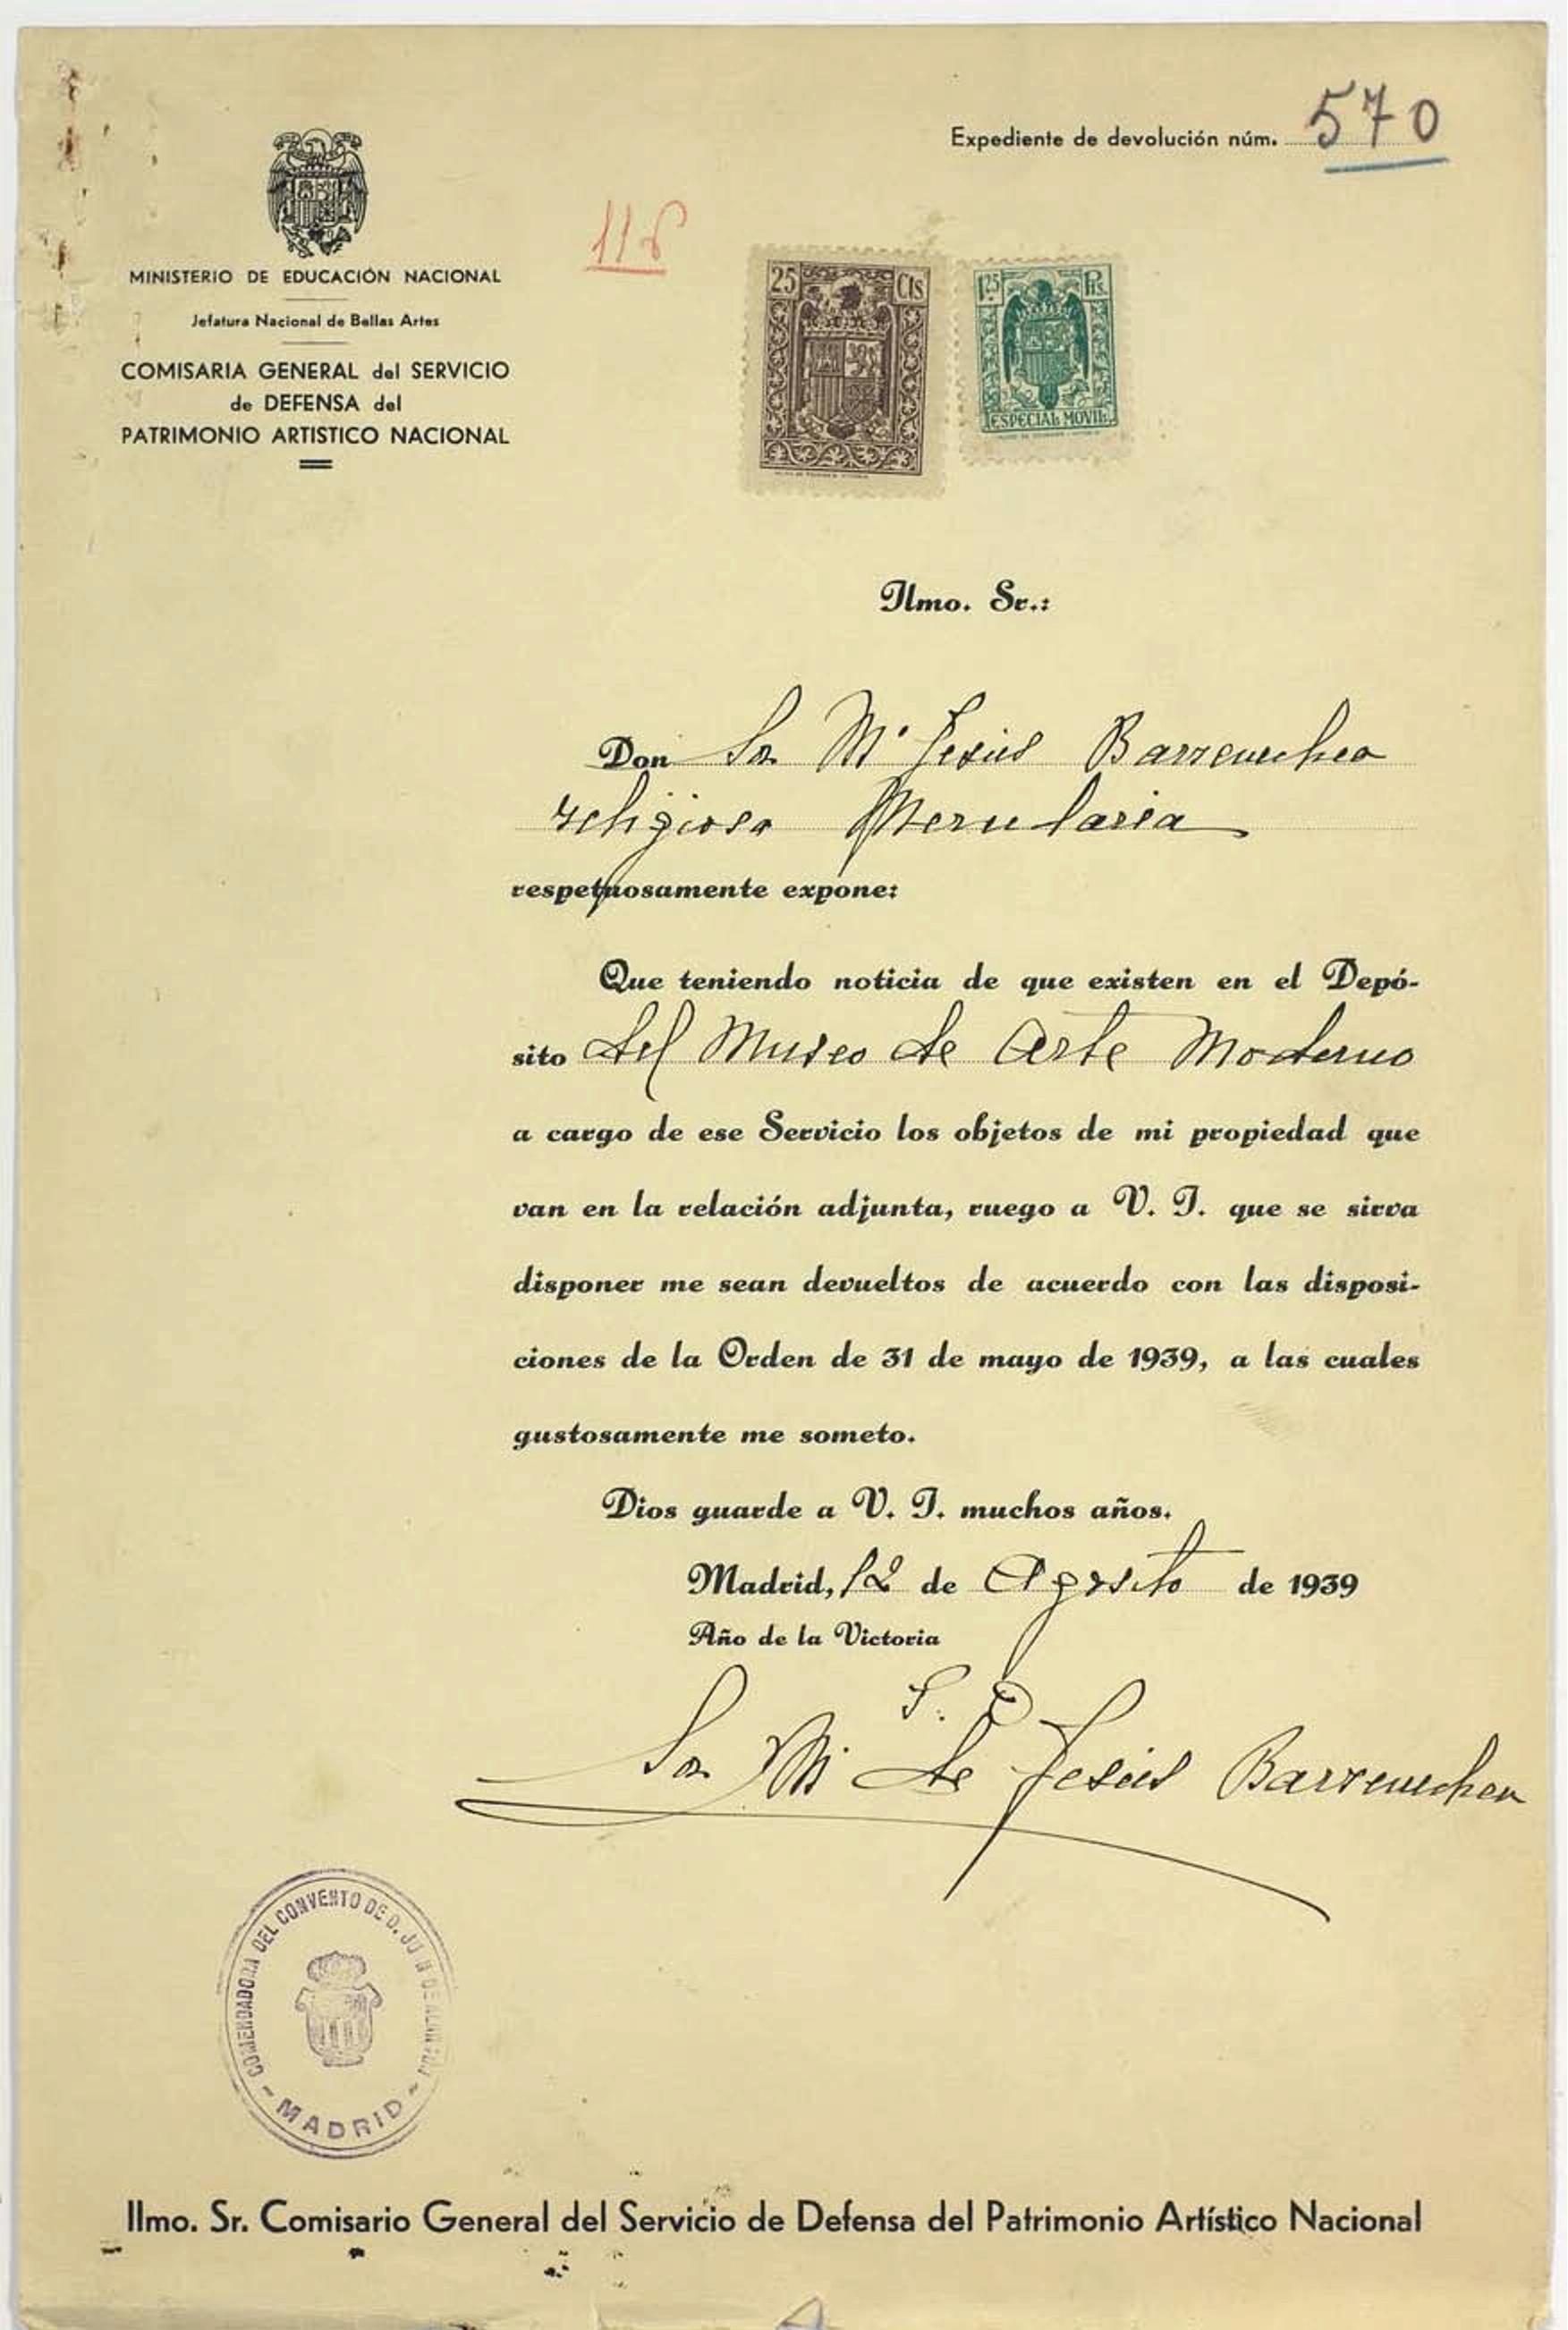 Expediente de devolución núm. 570
116
MINISTERIO DE EDUCACIÓN NACIONAL
Jefatura Nacional de Bellas Artes
COMISARIA GENERAL del SERVICIO
de DEFENSA del
PATRIMONIO ARTISTICO NACIONAL
25 Cts
1'25 Pts.
ESPECIAL MOVIL
Ilmo. Sr.:
Don Sor Mª Jesús Barrenechea
religiosa Mercedaria
respetuosamente expone:
Que teniendo noticia de que existen en el Depó-
sito del Museo de Arte Moderno
a cargo de ese Servicio los objetos de mi propiedad que
van en la relación adjunta, ruego a V. I. que se sirva
disponer me sean devueltos de acuerdo con las disposi-
ciones de la Orden de 31 de mayo de 1939, a las cuales
gustosamente me someto.
Dios guarde a V. I. muchos años.
Madrid, 12 de Agosto de 1939
Año de la Victoria
Sor Mª de Jesús Barrenechea
COMENDADORA DEL CONVENTO DE D. JUAN DE ALARCON
- MADRID -
Ilmo. Sr. Comisario General del Servicio de Defensa del Patrimonio Artístico Nacional